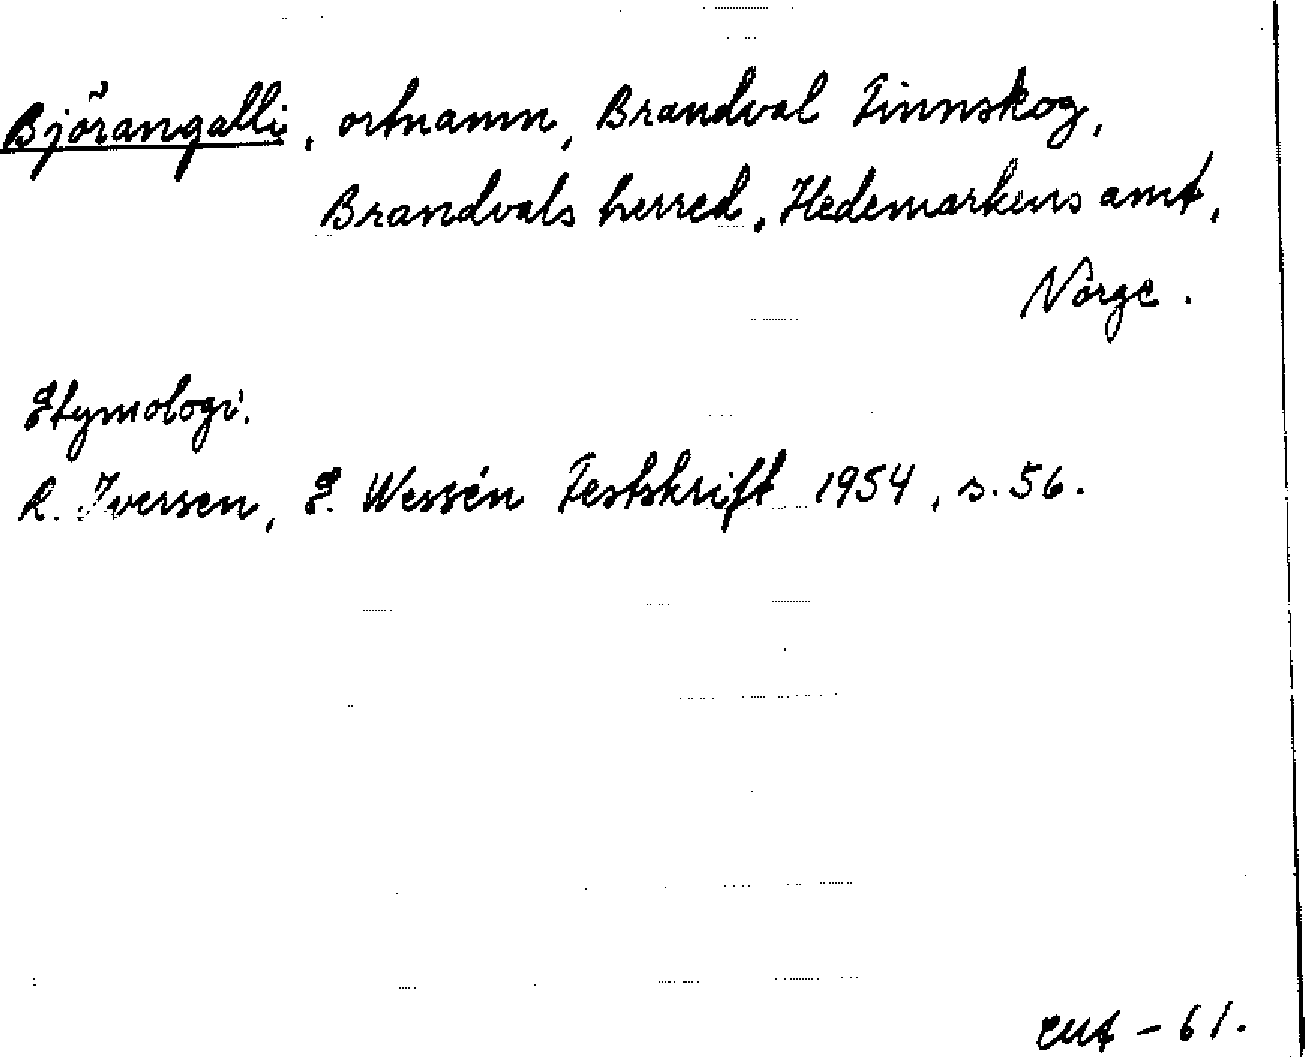 Björangalli, ortnamn, Brandval Finnskog,
Brandvals herred, Hedemarkens amt,
Norge.
Etymologi.
R. Iversen, E. Wessén Festskrift 1954, s. 56.
- 61.